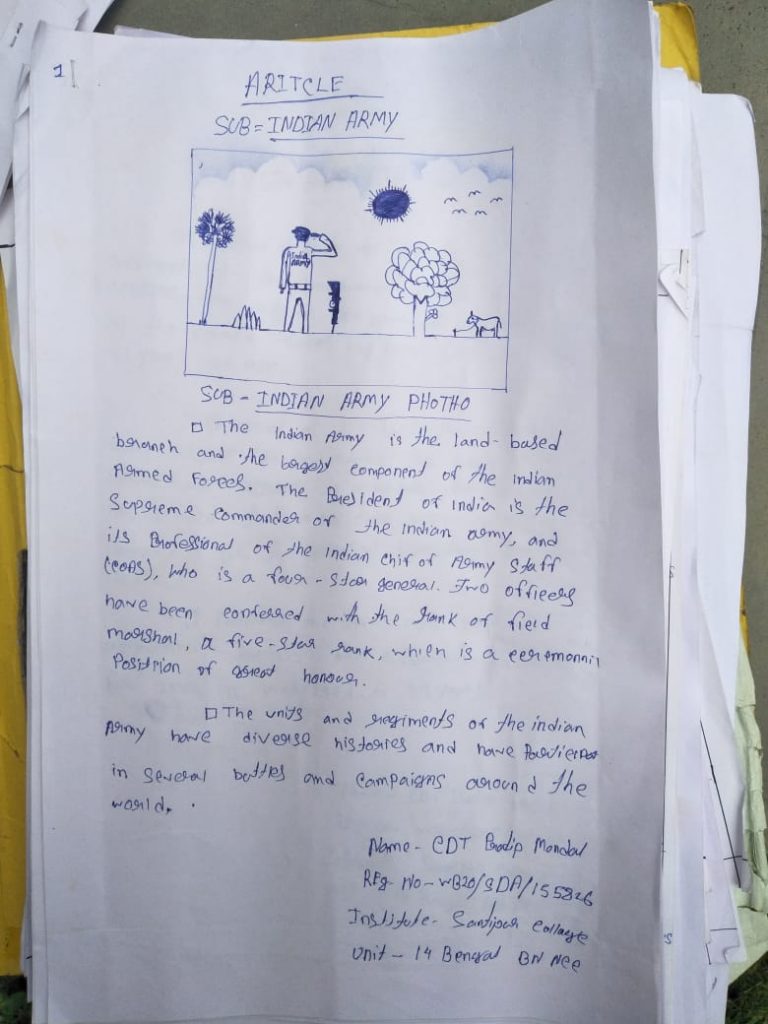 1
ARITCLE
SUB = INDIAN ARMY
India
ARMY
SUB - INDIAN ARMY PHOTHO
The Indian Army is the land-based
beraneh and the largest component of the Indian
Armed Forces. The President of India is the
Supreme Commander of the Indian army, and
its Professional of the Indian chif of Army Staff
(COAS), who is a four-star general. Two officers
have been conferred with the rank of field
marshal, a five-star rank, which is a ceremonni
Position of great honour.
The units and regiments of the indian
Army have diverse histories and have
in several battles and campaigns around the
world.
Name - CDT Pradip Mondal
REg- No - WB20/SDA/155826
Institute - Santipur College
Unit - 14 Bengal BN NCC